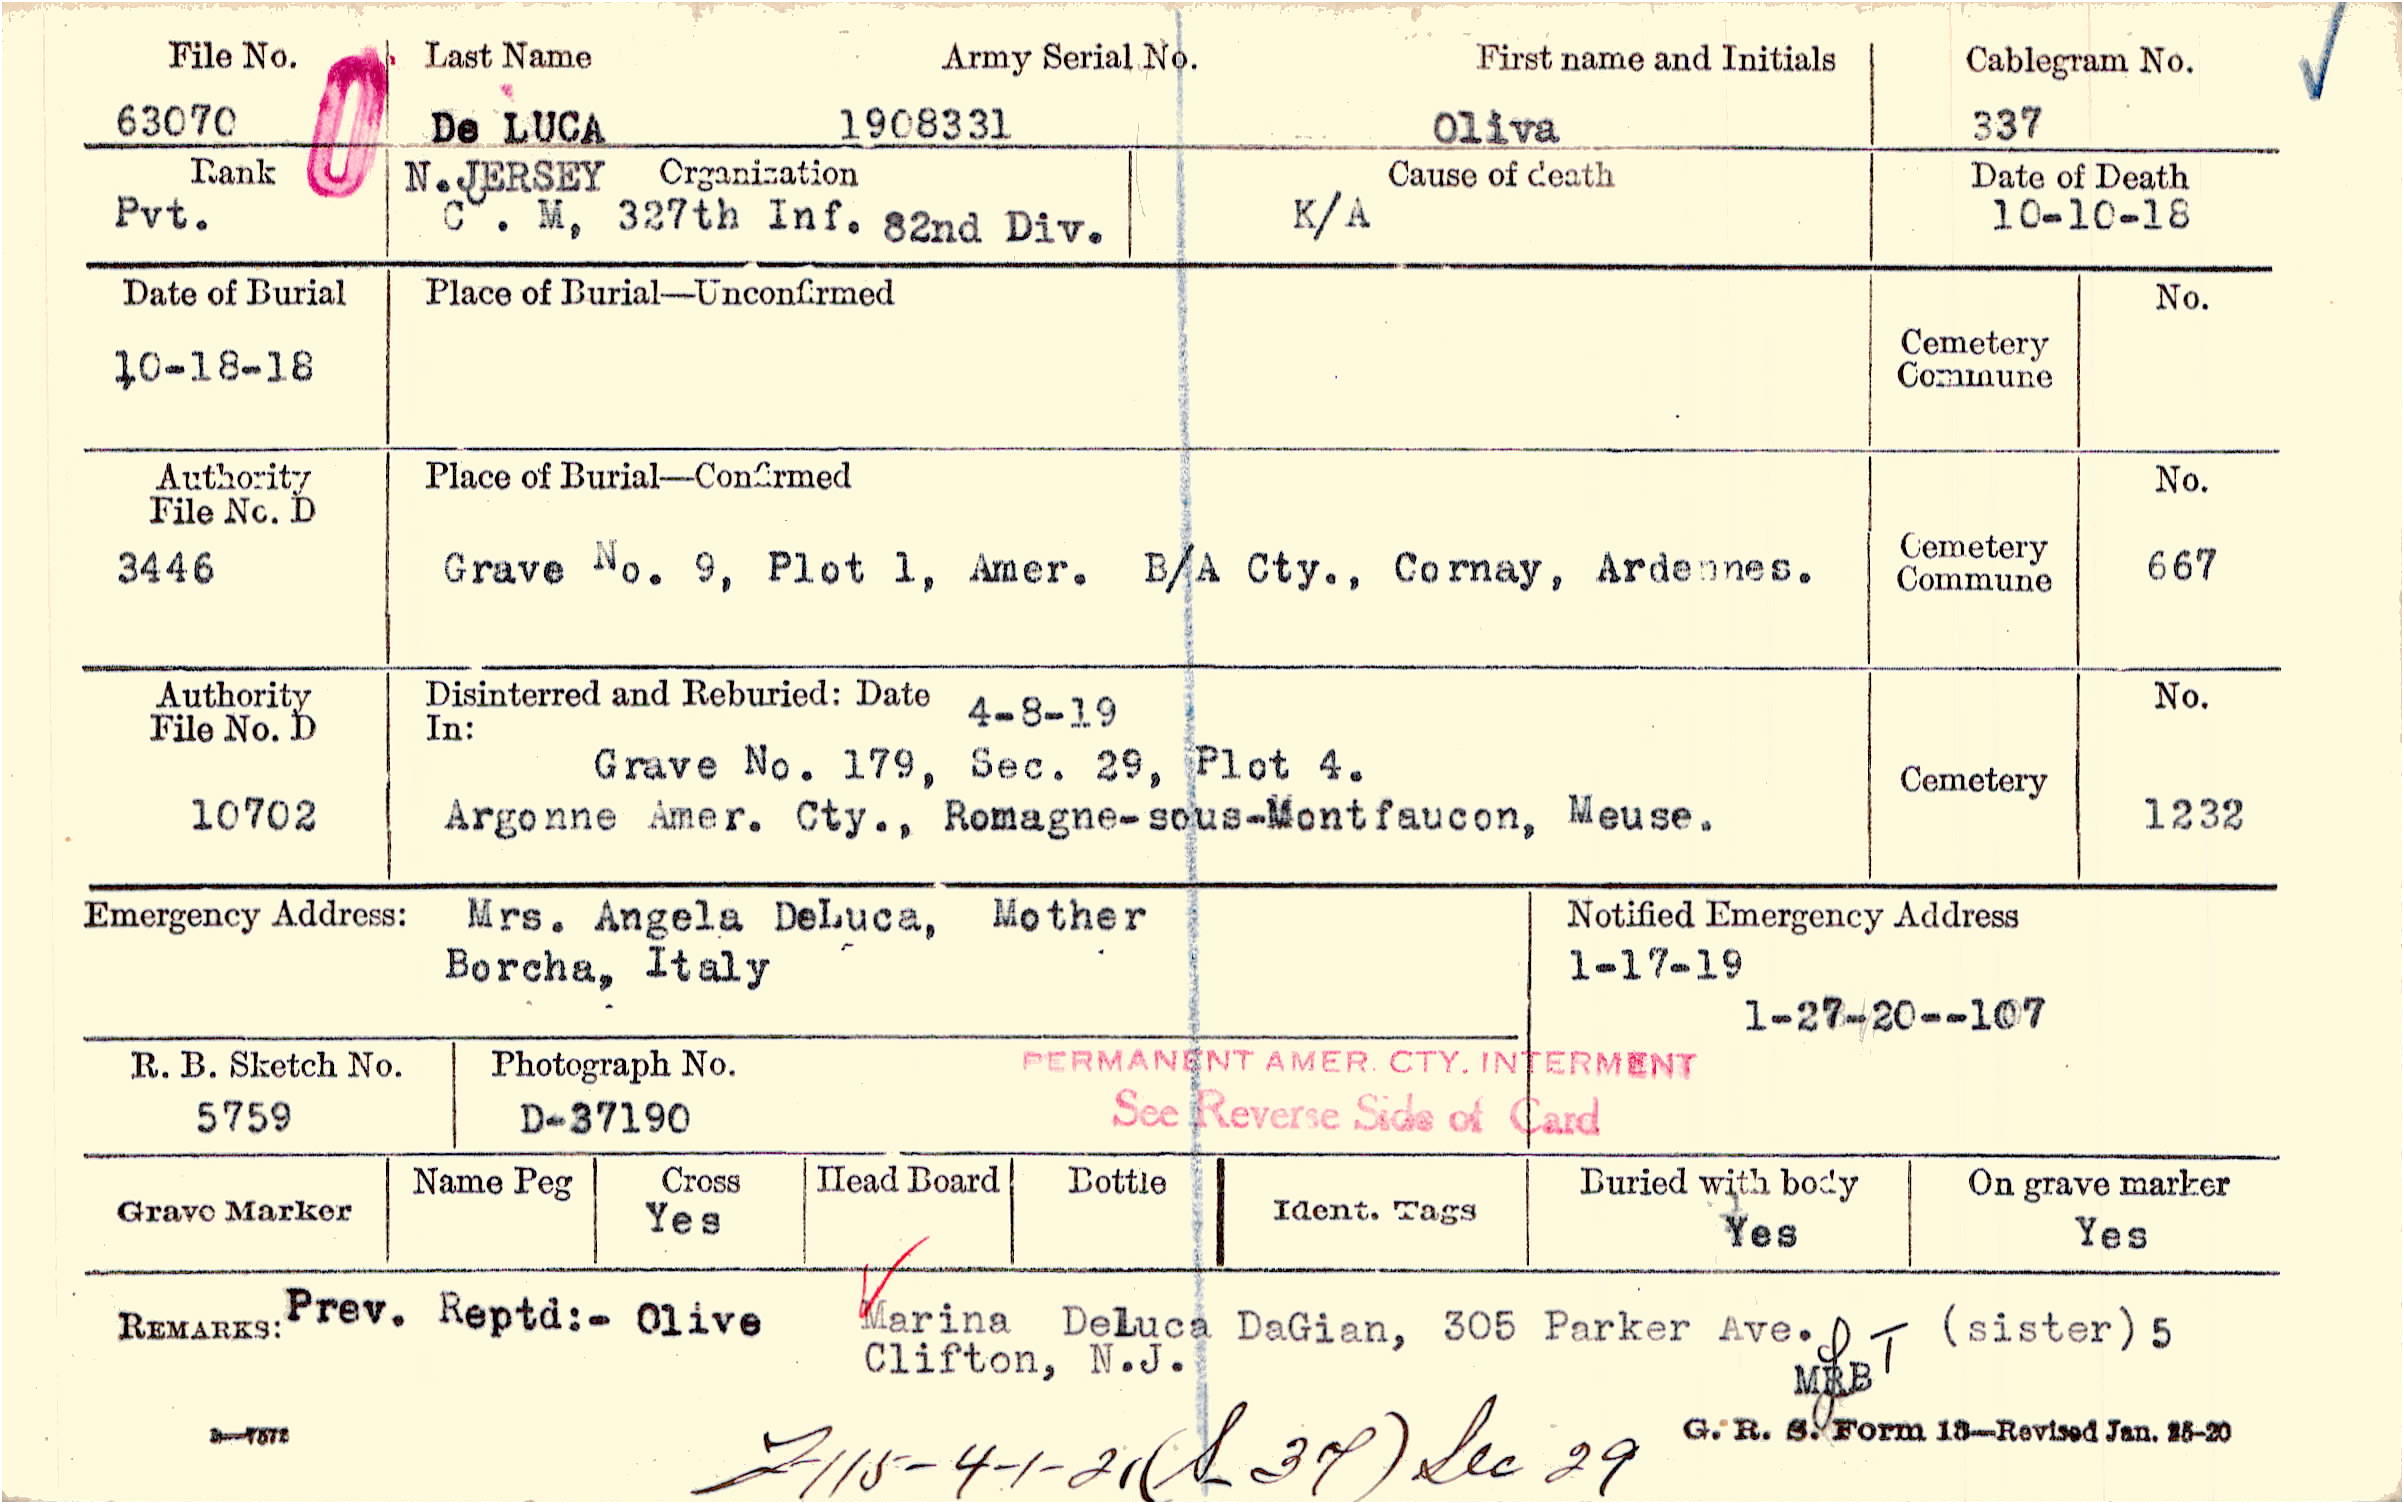 File No. Last Name Army Serial No. First name and Initials Cablegram No.
63070 De LUCA 1908331 Oliva 337
Rank N.JERSEY Organization Cause of death Date of Death
Pvt. C . M, 327th Inf. 82nd Div. K/A 10-10-18
Date of Burial Place of Burial—Unconfirmed No.
10-18-18 Cemetery
Commune
Authority Place of Burial—Confirmed No.
File No. D
3446 Grave No. 9, Plot 1, Amer. B/A Cty., Cornay, Ardennes. Cemetery 667
Commune
Authority Disinterred and Reburied: Date 4-8-19 No.
File No. D In:
Grave No. 179, Sec. 29, Plot 4.
Cemetery
10702 Argonne Amer. Cty., Romagne-sous-Montfaucon, Meuse. 1232
Emergency Address: Mrs. Angela DeLuca, Mother Notified Emergency Address
Borcha, Italy 1-17-19
1-27-20--107
R. B. Sketch No. Photograph No. PERMANENT AMER. CTY. INTERMENT
5759 D-37190 See Reverse Side of Card
Grave Marker Name Peg Cross Head Board Bottle Ident. Tags Buried with body On grave marker
Yes Yes Yes
REMARKS: Prev. Reptd:- Olive Marina DeLuca DaGian, 305 Parker Ave. (sister) 5
Clifton, N.J.
MRB
G. R. S. Form 13—Revised Jan. 26-20
3—7572
115-4-1-21 37) Sec 29